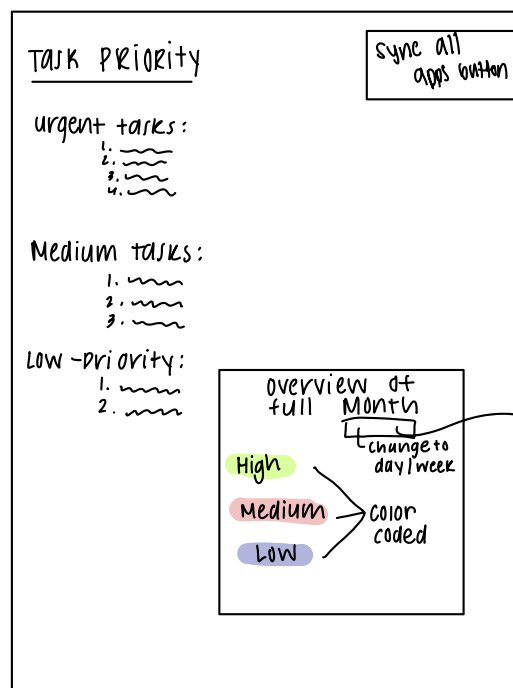 Task Priority
sync all
apps button
urgent tasks:
1.
2.
3.
4.
Medium tasks:
1.
2.
3.
Low-priority:
1.
2.
overview of
full Month
change to
day/week
High
Medium
Low
color
coded